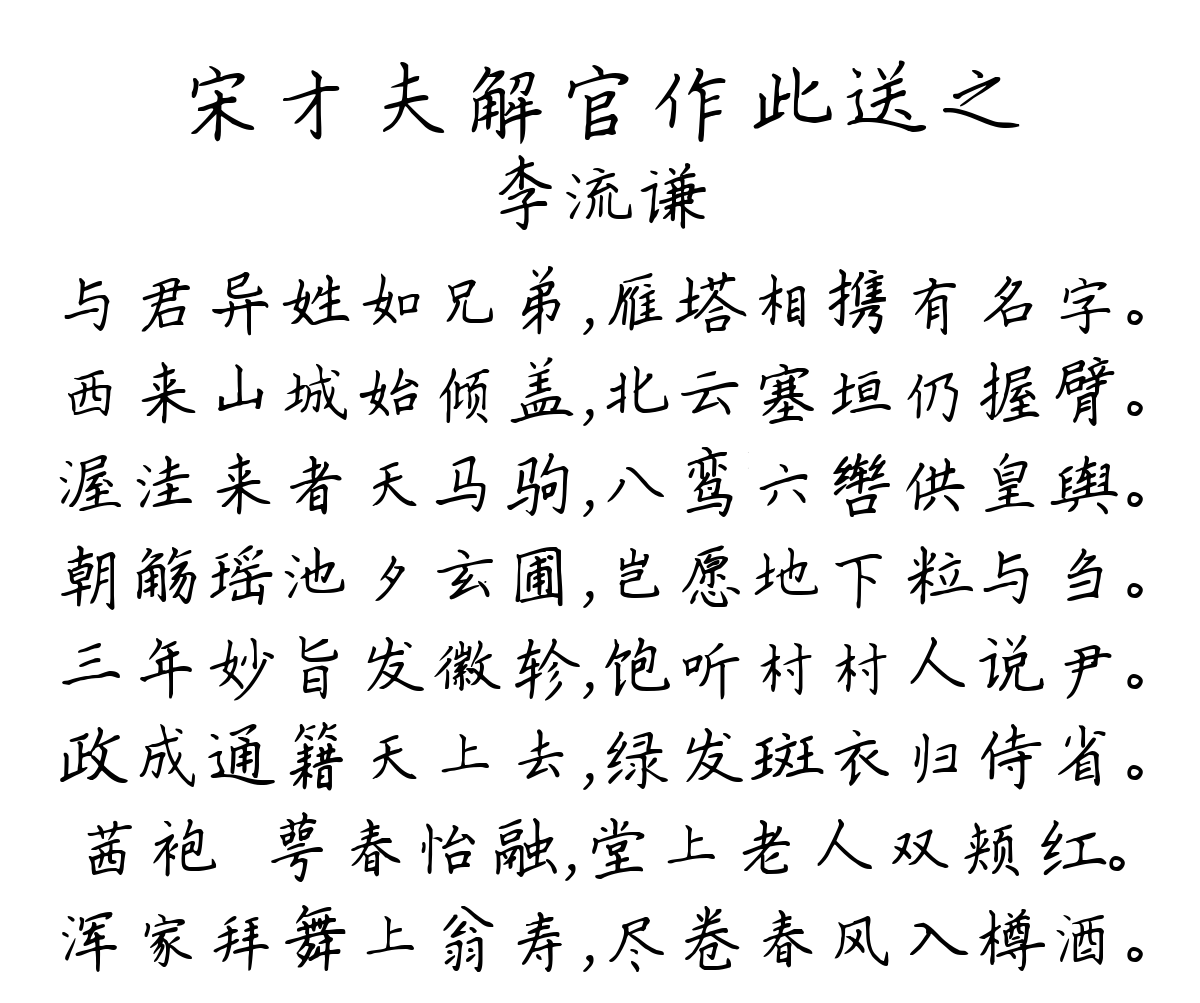 宋才夫解官作此送之
李流谦
与君异姓如兄弟,雁塔相携有名字。
西来山城始倾盖,北云塞垣仍握臂。
渥洼来者天马驹,八鸾六辔供皇舆。
朝觞瑶池夕玄圃,岂愿地下粒与刍。
三年妙旨发徽轸,饱听村村人说尹。
政成通籍天上去,绿发斑衣归侍省。
茜袍 萼春怡融,堂上老人双颊红。
浑家拜舞上翁寿,尽卷春风入樽酒。